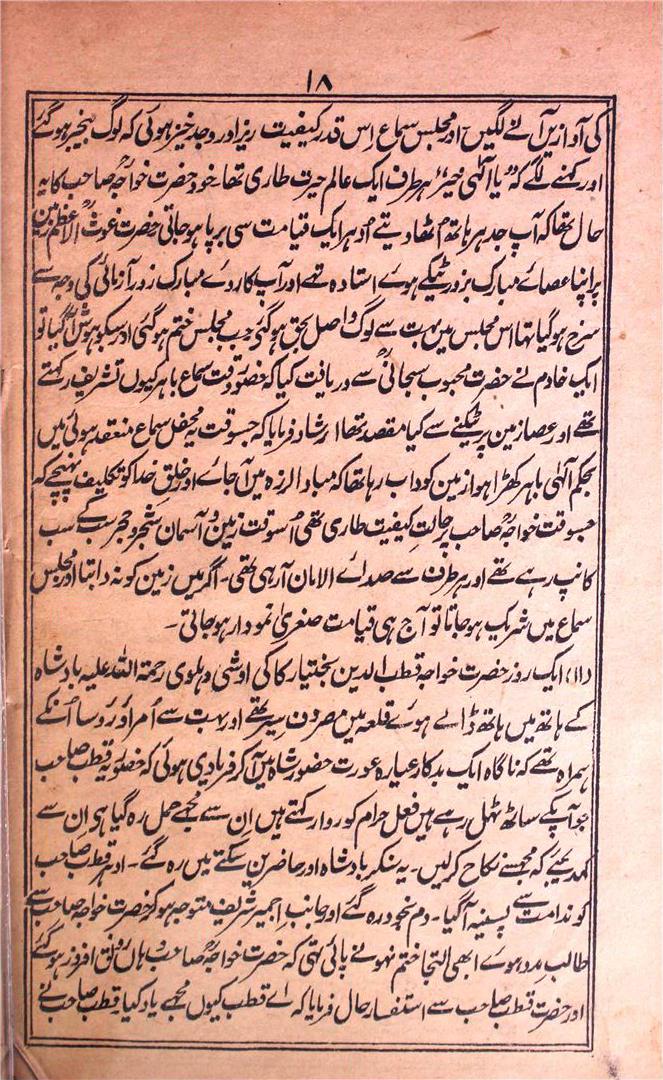 ۱۸
کی آوازیں آنے لگیں۔ اور مجلس سماع اِس قدر کیفیت ریز اور وجد خیز ہوئی کہ لوگ بیخبر ہو گئے
اور کہنے لگے کہ "یا الٰہی خیر" ہر طرف ایک عالم حیرت طاری تھا۔ خود حضرت خواجہؒ صاحب کا یہ
حال تھا کہ آپ جدہر ہاتھ اُٹھا دیتے اُدہر ایک قیامت سی برپا ہو جاتی حضرت غوث الاعظمؓ زمین
پر اپنا عصائے مبارک بزور ٹیکے ہوئے استادہ تھے اور آپ کا روے مبارک زور آزمائی کی وجہ سے
سرخ ہو گیا تہا اس مجلس میں بہت سے لوگ واصل بحق ہو گئی جب مجلس ختم ہو گئی اور سبکو ہوش آ گیا تو
ایک خادم نے حضرت محبوب سبحانیؒ سے دریافت کیا کہ حضور وقت سماع باہر کیوں تشریف رکہتے
تھے اور عصا زمین پر ٹیکنے سے کیا مقصد تھا ارشاد فرمایا کہ جسوقت یہ محفل سماع منعقد ہوئی میں
بحکم آلہٰی باہر کھڑا ہوا زمین کو داب رہا تھا کہ مبادا لرزہ میں آ جاے اور خلق خدا کو تکلیف پہنچے کہ
جسوقت خواجہؒ صاحب پر حالت کیفیت طاری تھی اُسوقت زمین و آسمان شجر و حجر سب کے سب
کانپ رہے تھے اور ہر طرف سے صداے الامان آ رہی تھی۔ اگر میں زمین کو نہ دابتا اور مجلس
سماع میں شریک ہو جاتا تو آج ہی قیامت صغریٰ نمودار ہو جاتی۔
(۱۱) ایک روز حضرت خواجہ قطب الدین بختیار کاکی اوشی دہلوی رحمۃ اللہ علیہ بادشاہ
کے ہاتھ میں ہاتھ ڈالے ہوئے قلعہ میں مصروف سیر تھے اور بہت سے اُمرا و رؤسا اُنکے
ہمراہ تھے کہ ناگاہ ایک بدکار عیارہ عورت حضور شاہ میں آ کر فریادی ہوئی کہ حضور یہ قطب صاحب
جو آپکے ساتھ ٹہل رہے ہیں فعل حرام کو روا رکہتے ہیں اِن سے مجہے حمل رہ گیا ہی ان سے
کہدیجئے کہ مجہسے نکاح کر لیں۔ یہ سنکر بادشاہ اور حاضرین سکتے میں رہ گئے۔ ادہر قطب صاحب
کو ندامت سے پسینہ آ گیا۔ دم بخود رہ گئے اور جانب اجمیر شریف متوجہ ہو کر حضرت خواجہ صاحب سے
طالب مدد ہوے ابھی التجا ختم نہونے پائی تہی کہ حضرت خواجہؒ صاحب وہاں رونق افروز ہو گئے
اور حضرت قطب صاحب سے استفسار حال فرمایا کہ اے قطب کیوں مجہے یاد کیا۔ قطب صاحب نے